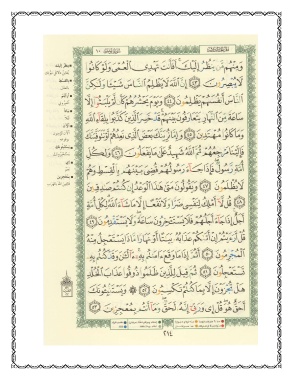 وَمِنْهُم مَّن يَنظُرُ إِلَيْكَ أَفَأَنتَ تَهْدِى الْعُمْىَ وَلَوْ كَانُوا
لَا يُبْصِرُونَ ٤٣ إِنَّ اللَّهَ لَا يَظْلِمُ النَّاسَ شَيْئًا وَلَٰكِنَّ
النَّاسَ أَنفُسَهُمْ يَظْلِمُونَ ٤٤ وَيَوْمَ يَحْشُرُهُمْ كَأَن لَّمْ يَلْبَثُوا إِلَّا
سَاعَةً مِّنَ النَّهَارِ يَتَعَارَفُونَ بَيْنَهُمْ قَدْ خَسِرَ الَّذِينَ كَذَّبُوا بِلِقَاءِ اللَّهِ
وَمَا كَانُوا مُهْتَدِينَ ٤٥ وَإِمَّا نُرِيَنَّكَ بَعْضَ الَّذِى نَعِدُهُمْ أَوْ نَتَوَفَّيَنَّكَ
فَإِلَيْنَا مَرْجِعُهُمْ ثُمَّ اللَّهُ شَهِيدٌ عَلَىٰ مَا يَفْعَلُونَ ٤٦ وَلِكُلِّ
أُمَّةٍ رَّسُولٌ فَإِذَا جَاءَ رَسُولُهُمْ قُضِىَ بَيْنَهُم بِالْقِسْطِ وَهُمْ
لَا يُظْلَمُونَ ٤٧ وَيَقُولُونَ مَتَىٰ هَٰذَا الْوَعْدُ إِن كُنتُمْ صَادِقِينَ
٤٨ قُل لَّا أَمْلِكُ لِنَفْسِى ضَرًّا وَلَا نَفْعًا إِلَّا مَا شَاءَ اللَّهُ لِكُلِّ أُمَّةٍ
أَجَلٌ إِذَا جَاءَ أَجَلُهُمْ فَلَا يَسْتَأْخِرُونَ سَاعَةً وَلَا يَسْتَقْدِمُونَ ٤٩
قُلْ أَرَأَيْتُمْ إِنْ أَتَاكُمْ عَذَابُهُ بَيَاتًا أَوْ نَهَارًا مَّاذَا يَسْتَعْجِلُ مِنْهُ
الْمُجْرِمُونَ ٥٠ أَثُمَّ إِذَا مَا وَقَعَ ءَامَنتُم بِهِ ءَالْـَٰٔنَ وَقَدْ كُنتُم بِهِ
تَسْتَعْجِلُونَ ٥١ ثُمَّ قِيلَ لِلَّذِينَ ظَلَمُوا ذُوقُوا عَذَابَ الْخُلْدِ
هَلْ تُجْزَوْنَ إِلَّا بِمَا كُنتُمْ تَكْسِبُونَ ٥٢ ۞ وَيَسْتَنبِئُونَكَ
أَحَقٌّ هُوَ قُلْ إِى وَرَبِّى إِنَّهُ لَحَقٌّ وَمَا أَنتُم بِمُعْجِزِينَ ٥٣
٢١٤